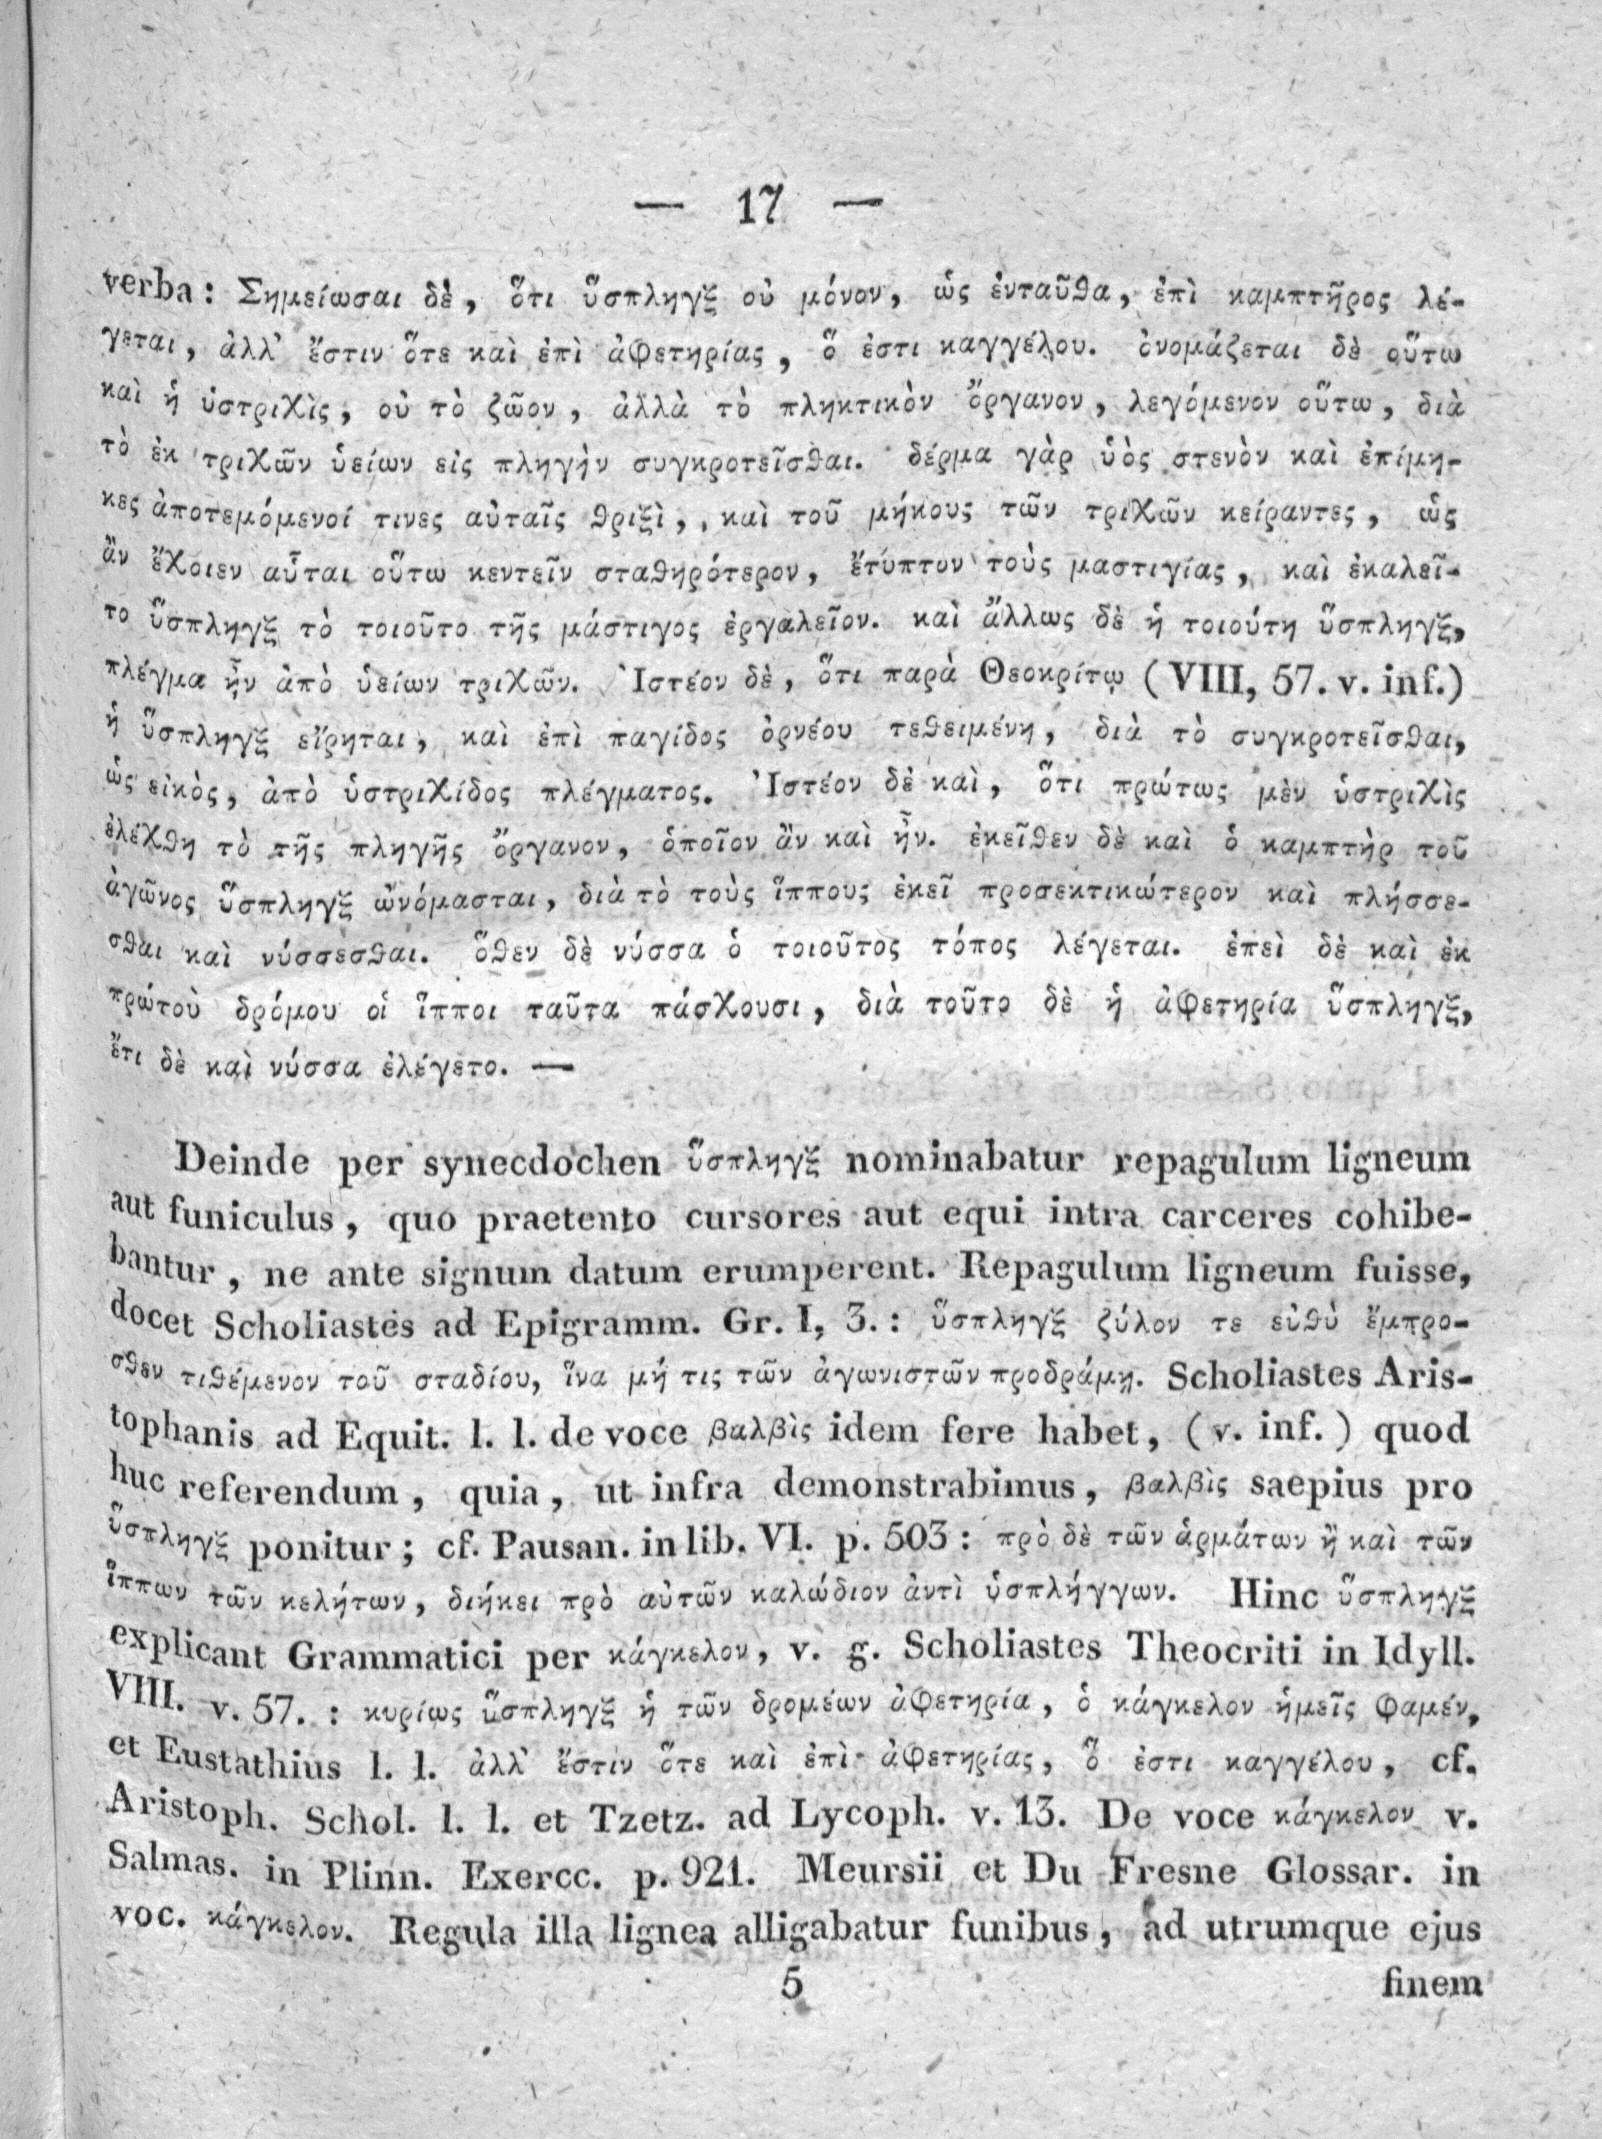 — 17 —
verba: Σημείωσαι δὲ, ὅτι ὕσπληγξ οὐ μόνον, ὡς ἐνταῦθα, ἐπὶ καμπτῆρος λέ-
γεται, ἀλλ᾽ ἔστιν ὅτε καὶ ἐπὶ ἀφετηρίας, ὅ ἐστι καγγέλου. ὀνομάζεται δὲ οὕτω
καὶ ἡ ὑστριχὶς, οὐ τὸ ζῶον, ἀλλὰ τὸ πληκτικὸν ὄργανον, λεγόμενον οὕτω, διὰ
τὸ ἐκ τριχῶν ὑείων εἰς πληγὴν συγκροτεῖσθαι. δέρμα γὰρ ὑὸς στενὸν καὶ ἐπίμη-
κες ἀποτεμόμενοί τινες αὐταῖς θριξὶ, καὶ τοῦ μήκους τῶν τριχῶν κείραντες, ὡς
ἂν ἔχοιεν αὗται οὕτω κεντεῖν σταθηρότερον, ἔτύπτον τοὺς μαστιγίας, καὶ ἐκαλεῖ-
το ὕσπληγξ τὸ τοιοῦτο τῆς μάστιγος ἐργαλεῖον. καὶ ἄλλως δὲ ἡ τοιούτη ὕσπληγξ,
πλέγμα ἦν ἀπὸ ὑείων τριχῶν. Ἰστέον δὲ, ὅτι παρὰ Θεοκρίτῳ (VIII, 57. v. inf.)
ἡ ὕσπληγξ εἴρηται, καὶ ἐπὶ παγίδος ὀρνέου τεθειμένη, διὰ τὸ συγκροτεῖσθαι,
ὡς εἰκὸς, ἀπὸ ὑστριχίδος πλέγματος. Ἰστέον δὲ καὶ, ὅτι πρώτως μὲν ὑστριχὶς
ἐλέχθη τὸ τῆς πληγῆς ὄργανον, ὁποῖον ἂν καὶ ἦν. ἐκεῖθεν δὲ καὶ ὁ καμπτὴρ τοῦ
ἀγῶνος ὕσπληγξ ὠνόμασται, διὰ τὸ τοὺς ἵππους ἐκεῖ προσεκτικώτερον καὶ πλήσσε-
σθαι καὶ νύσσεσθαι. ὅθεν δὲ νύσσα ὁ τοιοῦτος τόπος λέγεται. ἐπεὶ δὲ καὶ ἐκ
πρώτου δρόμου οἱ ἵπποι ταῦτα πάσχουσι, διὰ τοῦτο δὲ ἡ ἀφετηρία ὕσπληγξ,
ἔτι δὲ καὶ νύσσα ἐλέγετο. —
Deinde per synecdochen ὕσπληγξ nominabatur repagulum ligneum
aut funiculus, quo praetento cursores aut equi intra carceres cohibe-
bantur, ne ante signum datum erumperent. Repagulum ligneum fuisse,
docet Scholiastes ad Epigramm. Gr. I, 3.: ὕσπληγξ ζύλον τε εὐθὺ ἔμπρο-
σθεν τιθέμενον τοῦ σταδίου, ἵνα μή τις τῶν ἀγωνιστῶν προδράμῃ. Scholiastes Aris-
tophanis ad Equit. l. l. de voce βαλβὶς idem fere habet, (v. inf.) quod
huc referendum, quia, ut infra demonstrabimus, βαλβὶς saepius pro
ὕσπληγξ ponitur; cf. Pausan. in lib. VI. p. 503: πρὸ δὲ τῶν ἁρμάτων ἢ καὶ τῶν
ἵππων τῶν κελήτων, διήκει πρὸ αὐτῶν καλώδιον ἀντὶ ὑσπλήγγων. Hinc ὕσπληγξ
explicant Grammatici per κάγκελον, v. g. Scholiastes Theocriti in Idyll.
VIII. v. 57.: κυρίως ὕσπληγξ ἡ τῶν δρομέων ἀφετηρία, ὁ κάγκελον ἡμεῖς φαμέν,
et Eustathius l. l. ἀλλ᾽ ἔστιν ὅτε καὶ ἐπὶ ἀφετηρίας, ὅ ἐστι καγγέλου, cf.
Aristoph. Schol. l. l. et Tzetz. ad Lycoph. v. 13. De voce κάγκελον v.
Salmas. in Plinn. Exercc. p. 921. Meursii et Du Fresne Glossar. in
voc. κάγκελον. Regula illa lignea alligabatur funibus, ad utrumque ejus
5 finem